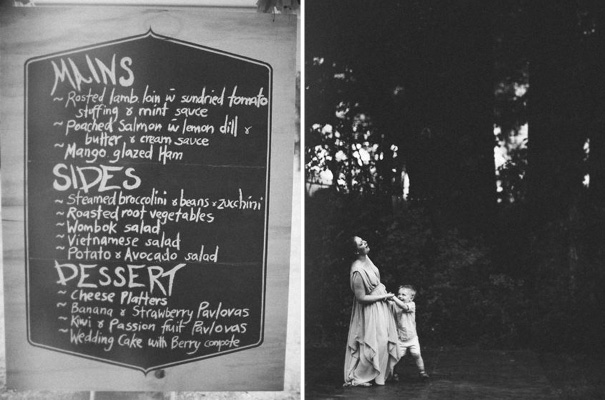 MAINS
~ Rosted lamb loin w̄ sundried tomato
stuffing & mint sauce
~ Poached Salmon w̄ lemon dill &
butter & cream sauce
~ Mango glazed Ham
SIDES
~ Steamed broccolini & beans & zucchini
~ Roasted root vegetables
~ Wombok salad
~ Vietnamese salad
~ Potato & Avocado salad
DESSERT
~ Cheese Platters
~ Banana & Strawberry Pavlovas
~ Kiwi & Passion fruit Pavlovas
~ Wedding Cake with Berry compote